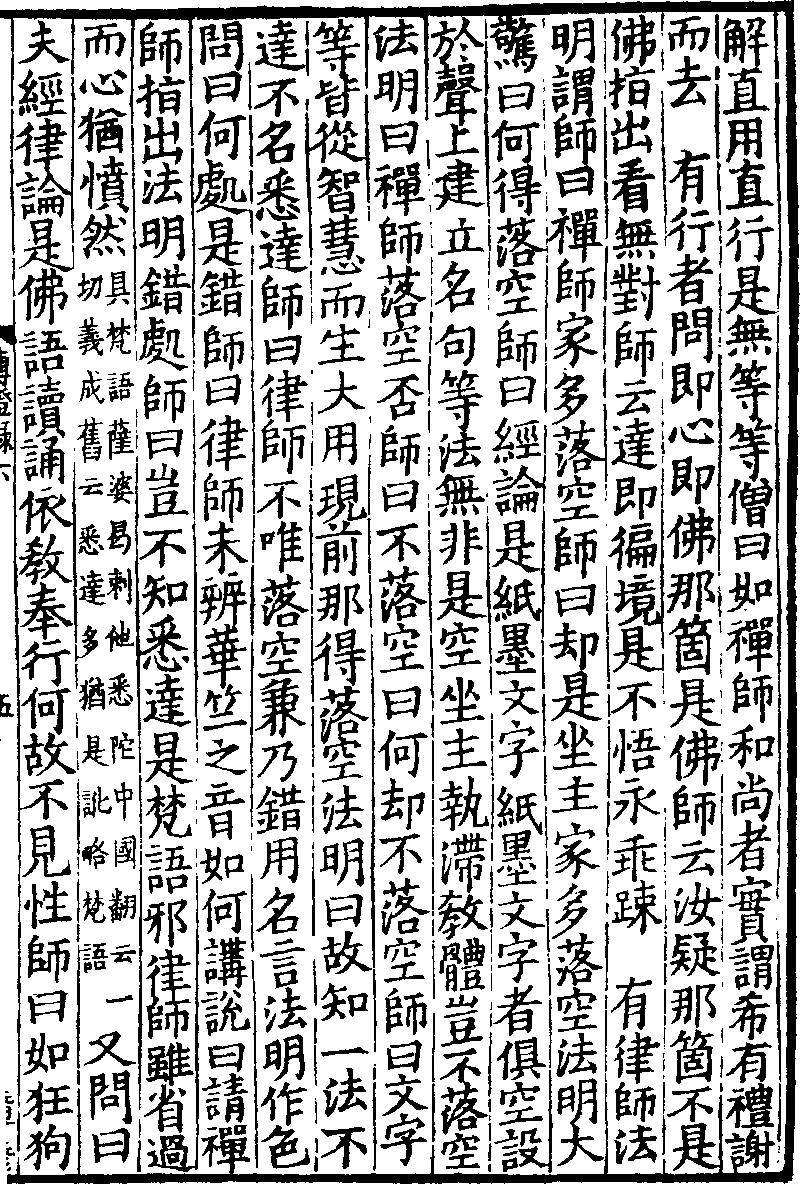 解直用直行是無等等僧曰如禪師和尚者實謂希有禮謝
而去　有行者問即心即佛那箇是佛師云汝疑那箇不是
佛指出看無對師云達即徧境是不悟永乖踈　有律師法
明謂師曰禪師家多落空師曰却是坐主家多落空法明大
驚曰何得落空師曰經論是紙墨文字紙墨文字者俱空設
於聲上建立名句等法無非是空坐主執滯教體豈不落空
法明曰禪師落空否師曰不落空曰何却不落空師曰文字
等皆從智慧而生大用現前那得落空法明曰故知一法不
達不名悉達師曰律師不唯落空兼乃錯用名言法明作色
問曰何處是錯師曰律師未辨華竺之音如何講說曰請禪
師指出法明錯處師曰豈不知悉達是梵語邪律師雖省過
而心猶憤然具梵語薩婆曷剌他悉陀中國翻云一切義成舊云悉達多猶是訛略梵語又問曰
夫經律論是佛語讀誦依教奉行何故不見性師曰如狂狗